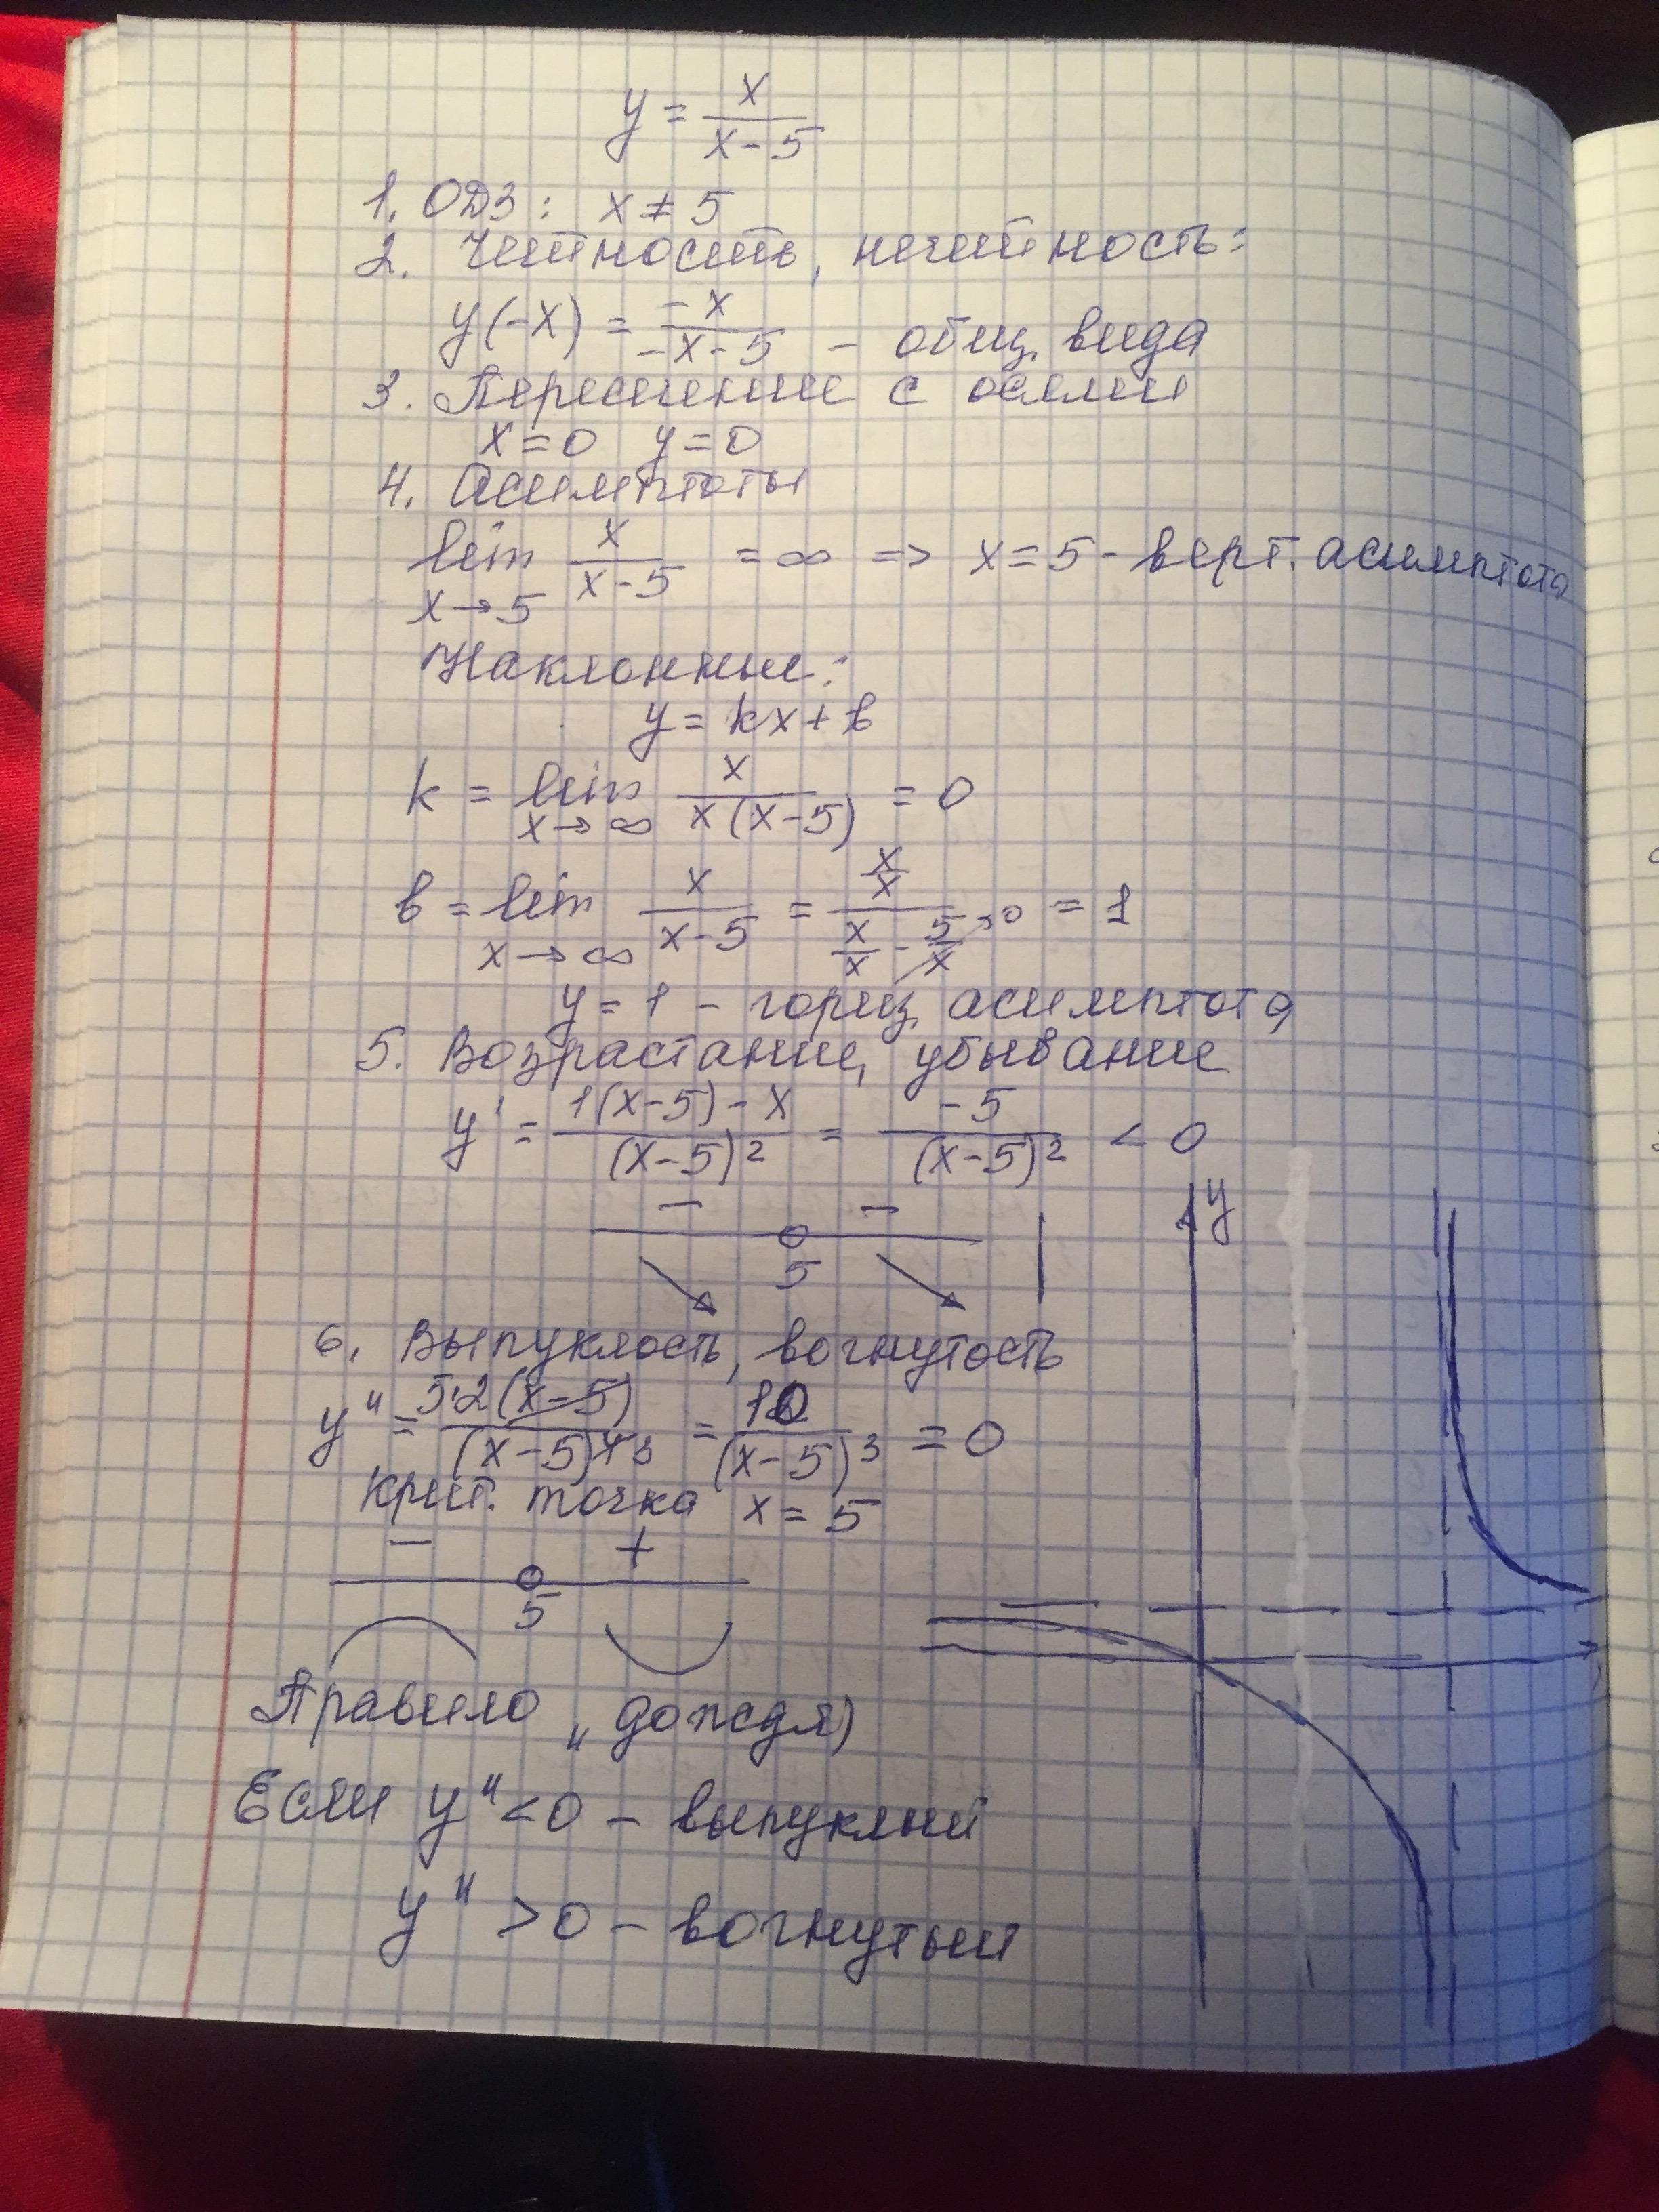 y = x / (x - 5)
1. ОДЗ: x ≠ 5
2. Четность, нечетность:
y(-x) = -x / (-x - 5) - общ. вида
3. Пересечение с осями
x = 0 y = 0
4. Асимптоты
lim x→5 x / (x - 5) = ∞ => x = 5 - верт. асимптота
Наклонные:
y = kx + b
k = lim x→∞ x / (x(x - 5)) = 0
b = lim x→∞ x / (x - 5) = (x/x) / (x/x - 5/x → 0) = 1
y = 1 - гориз. асимптота
5. Возрастание, убывание
y' = (1(x-5) - x) / (x-5)² = -5 / (x-5)² < 0
- -
5
y
6. Выпуклость, вогнутость
y'' = 5·2(x-5) / (x-5)⁴ ³ = 10 / (x-5)³ = 0
Крит. точка x = 5
- +
5
Правило „дождя)
Если y'' < 0 - выпуклый
y'' > 0 - вогнутый